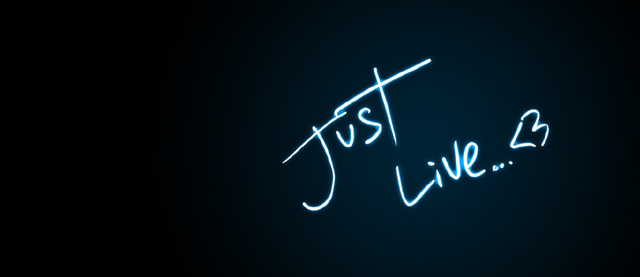 Just
Live...<3